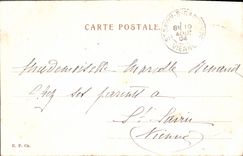 CARTE POSTALE
8E 19
AOUT
04
VIENNE
Mademoiselle Marcelle Renaud
Chez ses parents à
St Savin
Vienne
E. P. Ch.